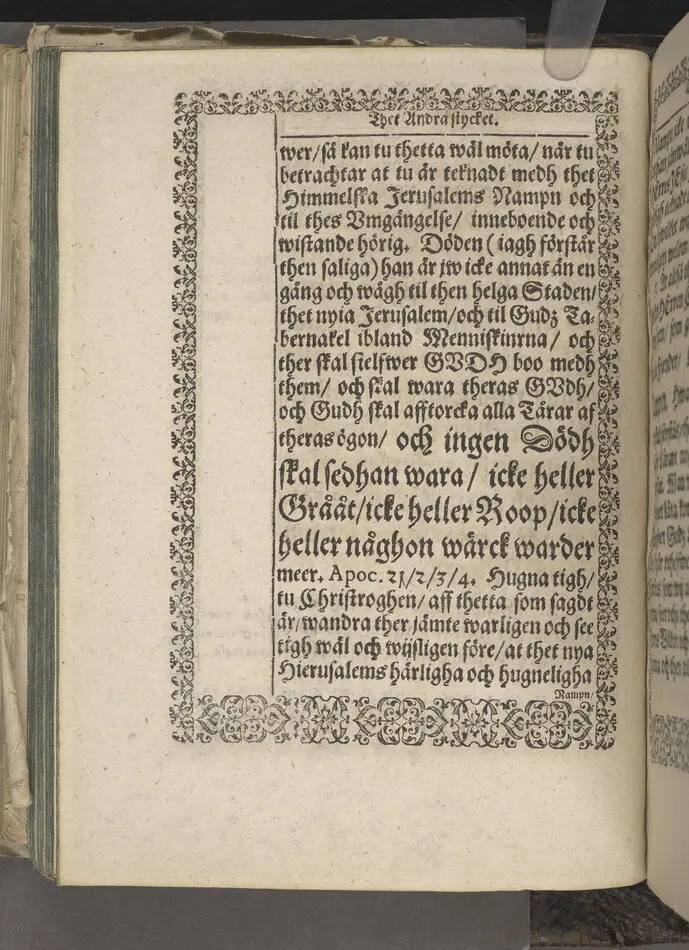 Thet Andra stycket.
wer/så kan tu thetta wäl möta/ när tu
betrachtar at tu är teknadt medh thet
Himmelska Jerusalems Nampn och
til thes Vmgängelse/ inneboende och
wistande hörig. Döden (iagh förstår
then saliga) han är jw icke annat än en
gång och wägh til then helga Staden/
thet nyia Jerusalem/och til Gudz Ta-
bernakel ibland Menniskiurna/ och
ther skal sielfwer GVDH boo medh
them/ och skal wara theras GVdh/
och Gudh skal afftorcka alla Tårar af
theras ögon/ och ingen Dödh
skal sedhan wara/ icke heller
Grååt/icke heller Roop/icke
heller någhon wärck warder
meer. Apoc. 21/2/3/4. Hugna tigh/
tu Christroghen/ aff thetta som sagdt
är/ wandra ther jämte warligen och see
tigh wäl och wijsligen före/at thet nya
Hierusalems härligha och hugneligha
Nampn/